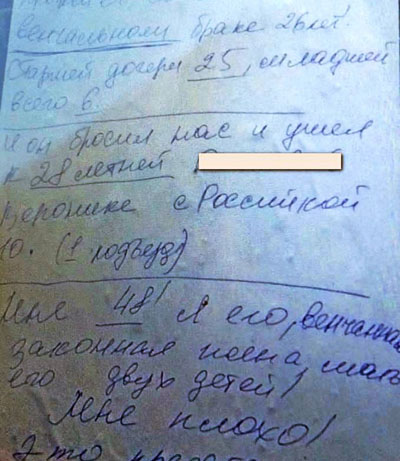 венчальном браке 26 лет!
Старшей дочери 25, младшей
всего 6.
И он бросил нас и ушел
к 28 летней
Веронике с Российской
10. (1 подъезд)
Мне 48! Я его, венчанная
законная жена, мать
его двух детей!
Мне плохо!
Это